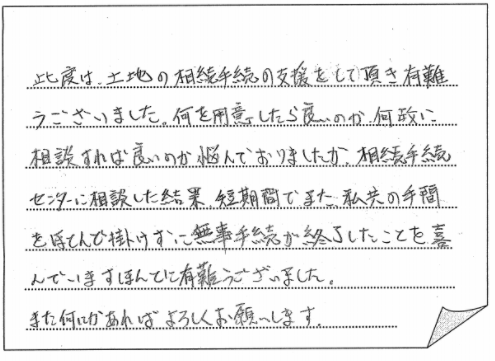 此度は、土地の相続手続の支援をして頂き有難
うございました。何を用意したら良いのか、何政に
相談すれば良いのか悩んでおりましたが、相続手続
センターに相談した結果、短期間でまた、私共の手間
をほとんど掛けずに無事手続が終了したことを喜
んでいますほんとに有難うございました。
また何にかあればよろしくお願いします。